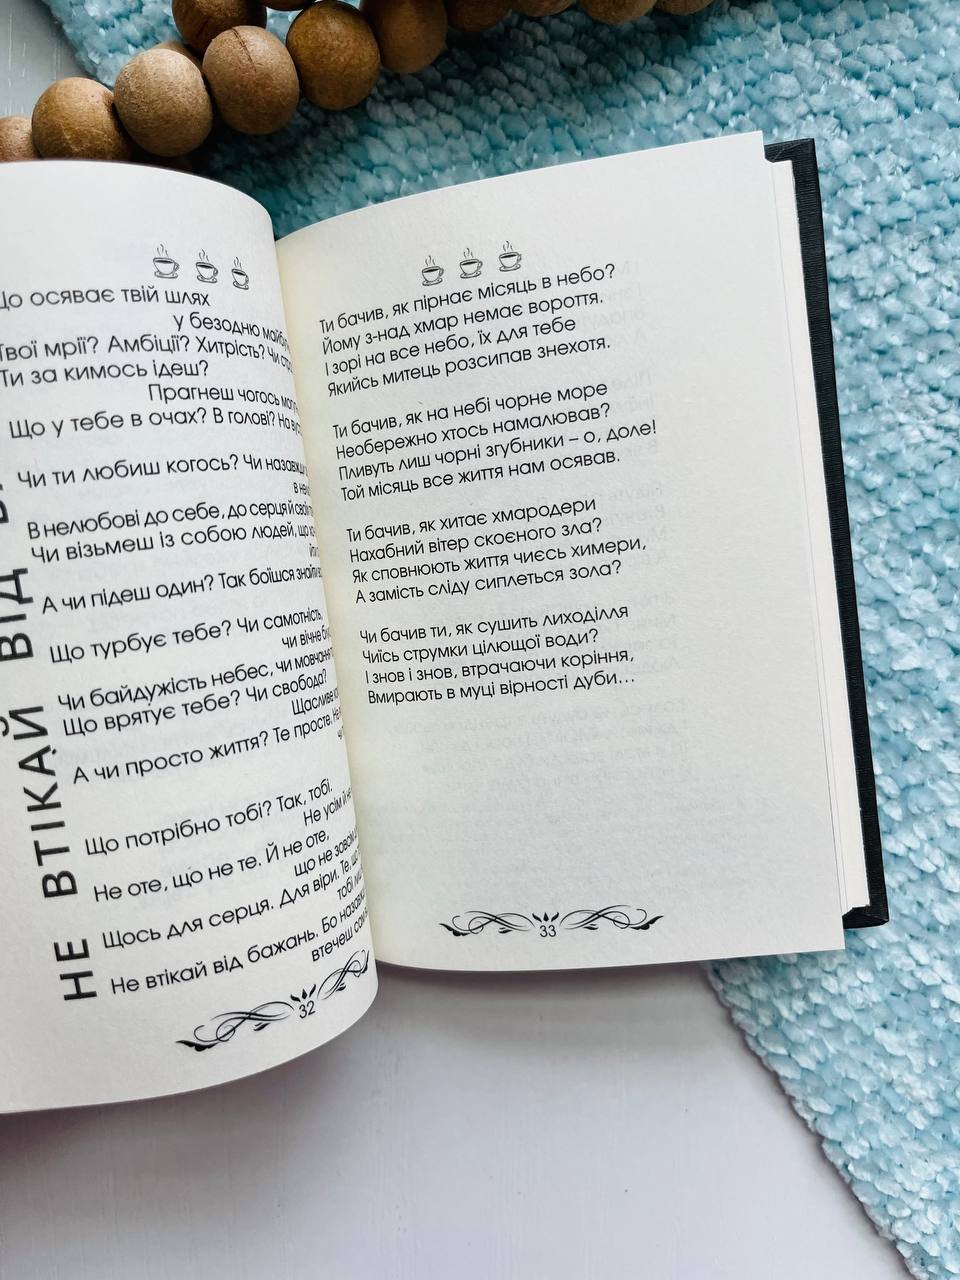 НЕ ВТІКАЙ ВІД
осяває твій шлях
у безодню
Твої мрії? Амбіції? Хитрість? Чи
Ти за кимось ідеш?
Прагнеш чогось
Що у тебе в очах? В голові? На
Чи ти любиш когось? Чи
В нелюбові до себе, до серця й
Чи візьмеш із собою людей, що
А чи підеш один? Так боїшся
Що турбує тебе? Чи самотність,
чи вічне
Чи байдужість небес, чи мовчання
Що врятує тебе? Чи свобода?
Щасливе
А чи просто життя? Те просте.
Що потрібно тобі? Так, тобі.
Не усім й не
Не оте, що не те. Й не оте,
що не
Щось для серця. Для віри. Те, що
тобі
Не втікай від бажань. Бо
втечеш
32
Ти бачив, як пірнає місяць в небо?
Йому з-над хмар немає вороття.
І зорі на все небо, їх для тебе
Якийсь митець розсипав знехотя.
Ти бачив, як на небі чорне море
Необережно хтось намалював?
Пливуть лиш чорні згубники – о, доле!
Той місяць все життя нам осявав.
Ти бачив, як хитає хмародери
Нахабний вітер скоєного зла?
Як сповнюють життя чиєсь химери,
А замість сліду сиплеться зола?
Чи бачив ти, як сушить лиходілля
Чиїсь струмки цілющої води?
І знов і знов, втрачаючи коріння,
Вмирають в муці вірності дуби...
33